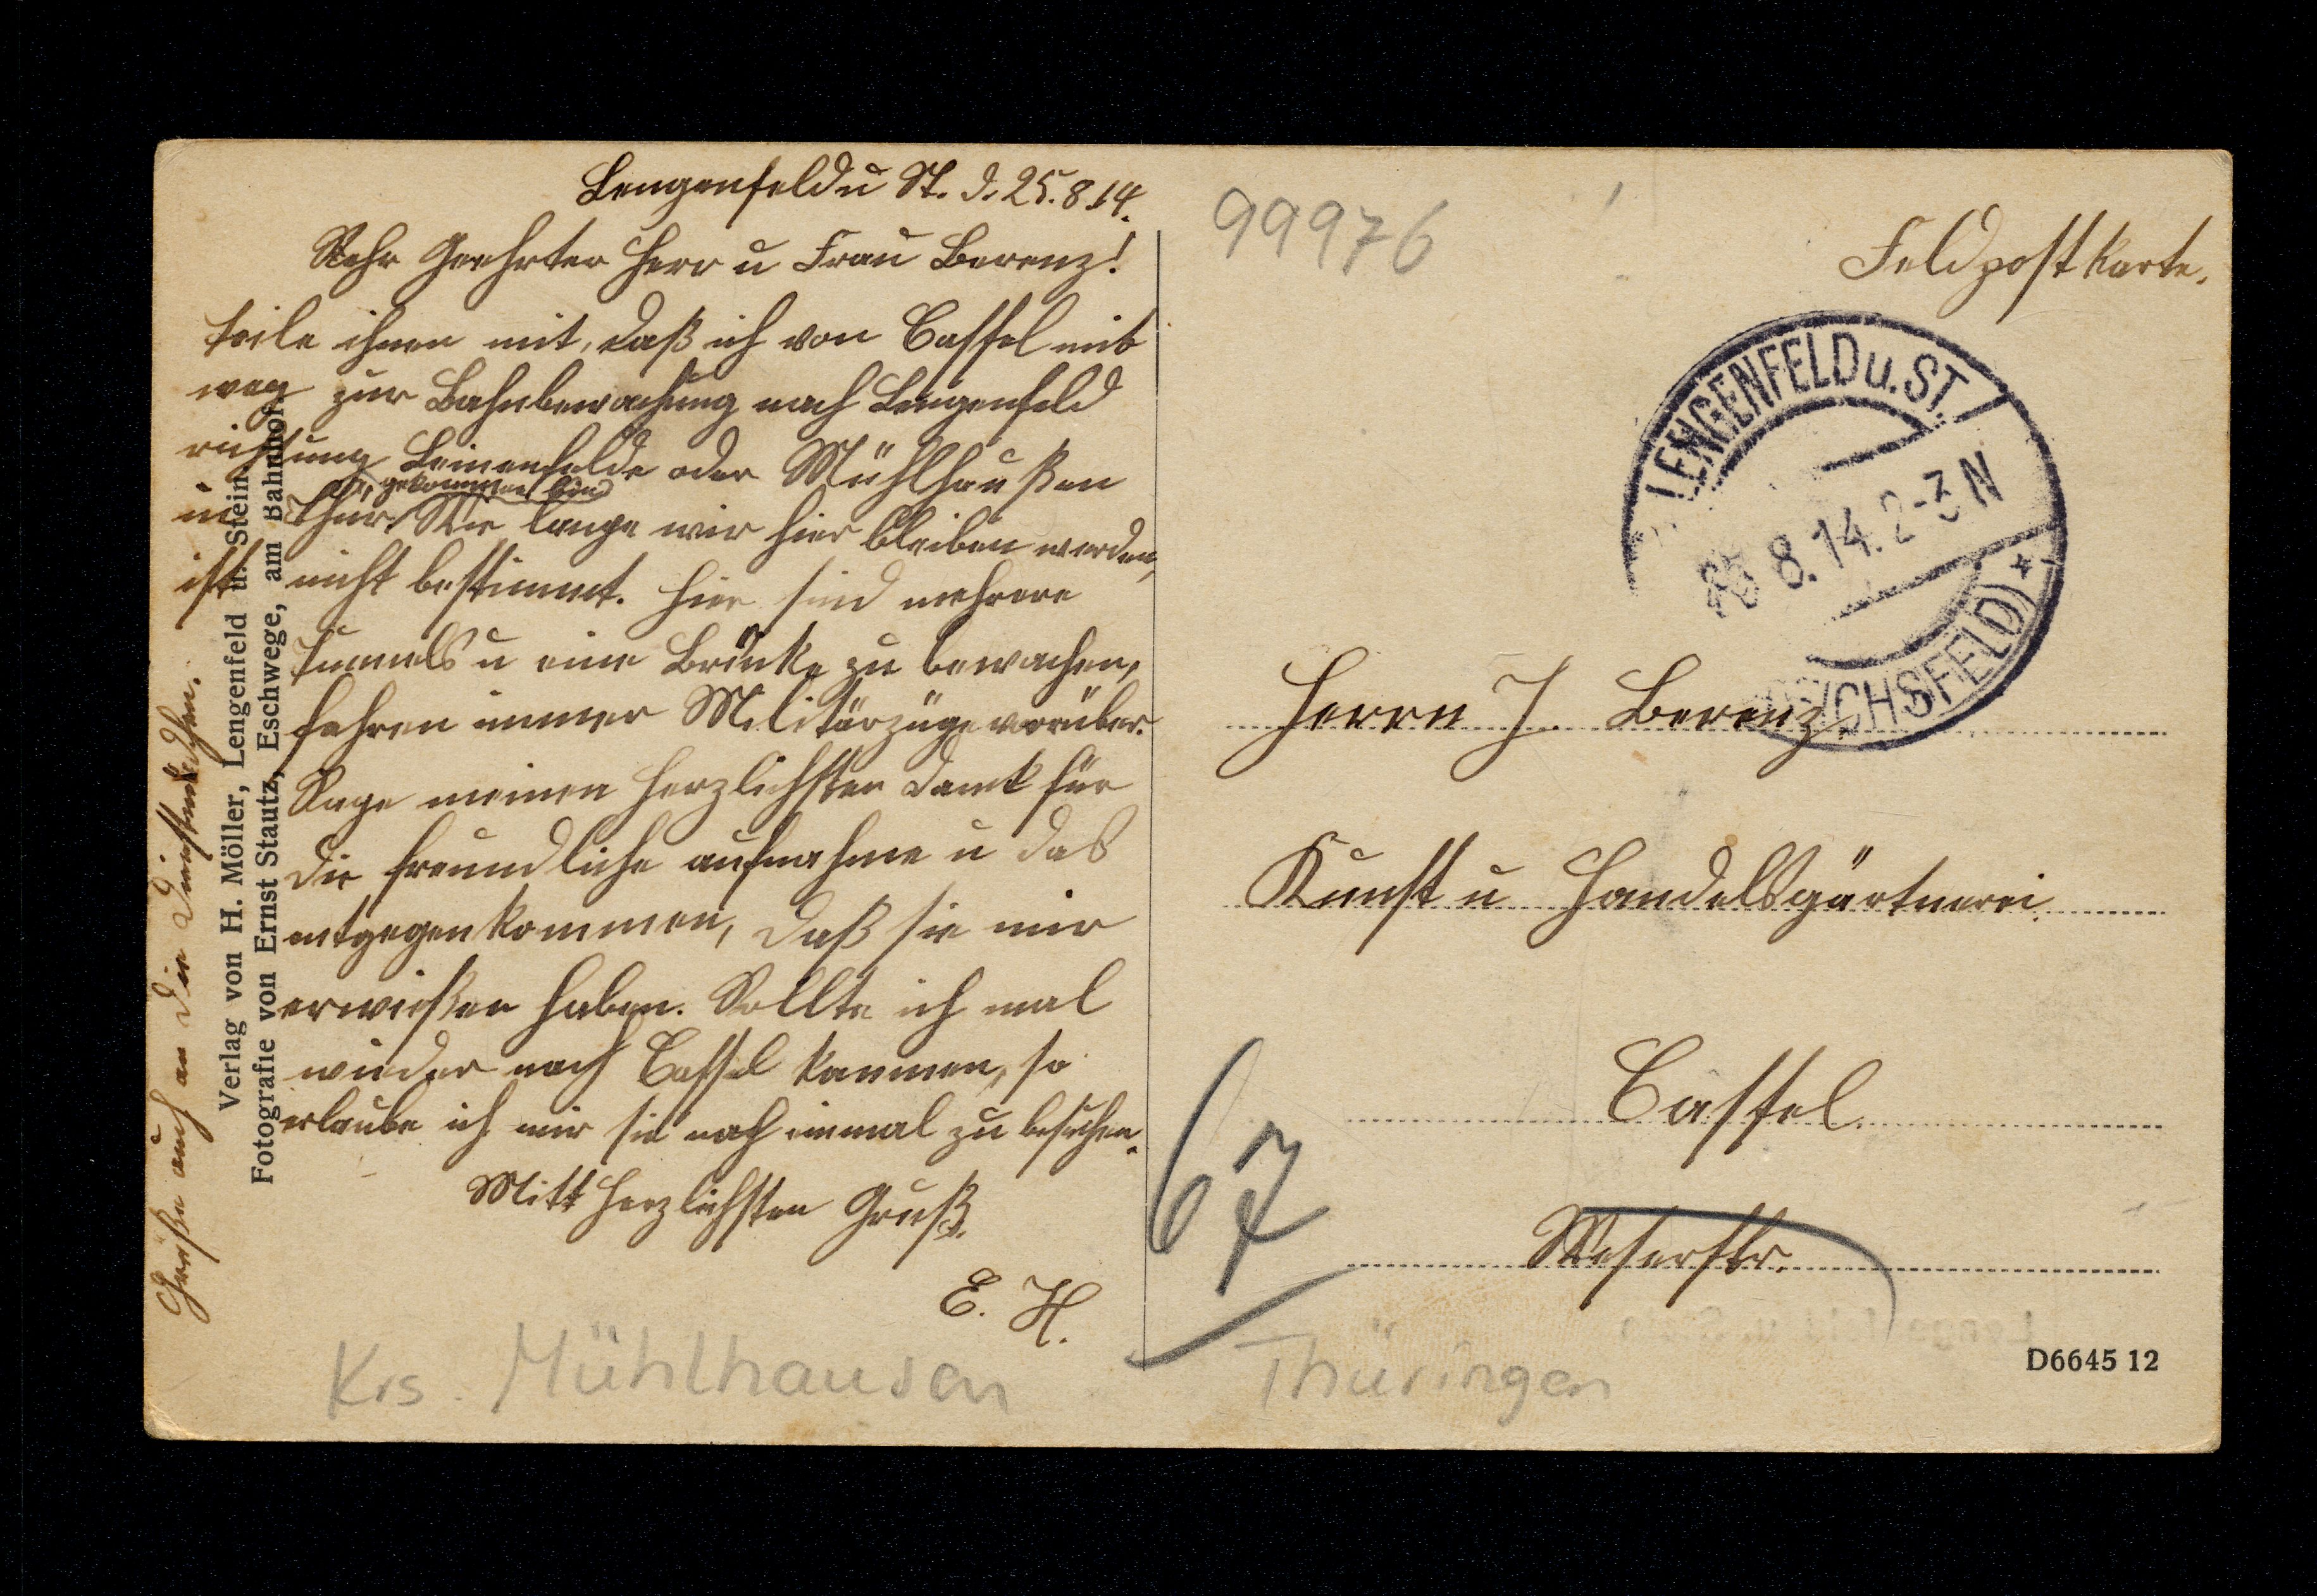 Lengenfeld u St. d. 25.8.14.
Sehr Geehrter Herr u Frau Berenz!
teile ihnen mit, daß ich von Cassel mit
weg zur Bahnbewachung nach Lengenfeld
richtung Leinenfelde oder Mühlhaußen
gekommen bin
in Thür. Wie lange wir hier bleiben werden,
ist nicht bestimmt. Hier sind mehrere
Tunnels u eine Brücke zu bewachen,
fahren immer Militärzüge vorüber.
Sage meinen Herzlichsten Dank für
die freundliche aufnahme u das
entgegenkommen, daß sie mir
erwießen haben. Sollte ich mal
wieder nach Cassel kommen, so
erlaube ich mir sie noch einmal zu besuchen.
Mitt Herzlichsten Gruß.
E. H.
Grüße auch an die Dienstmädchen.
Verlag von H. Möller, Lengenfeld u. Stein
Fotografie von Ernst Stautz, Eschwege, am Bahnhof
Krs. Mühlhausen Thüringen
99976
Feldpostkarte.
LENGENFELD u. ST.
8.14. 2-3 N
(EICHSFELD) *
Herrn J. Berenz.
Kunst u Handelsgärtnerei.
Cassel.
67
Weserstr.
D6645 12